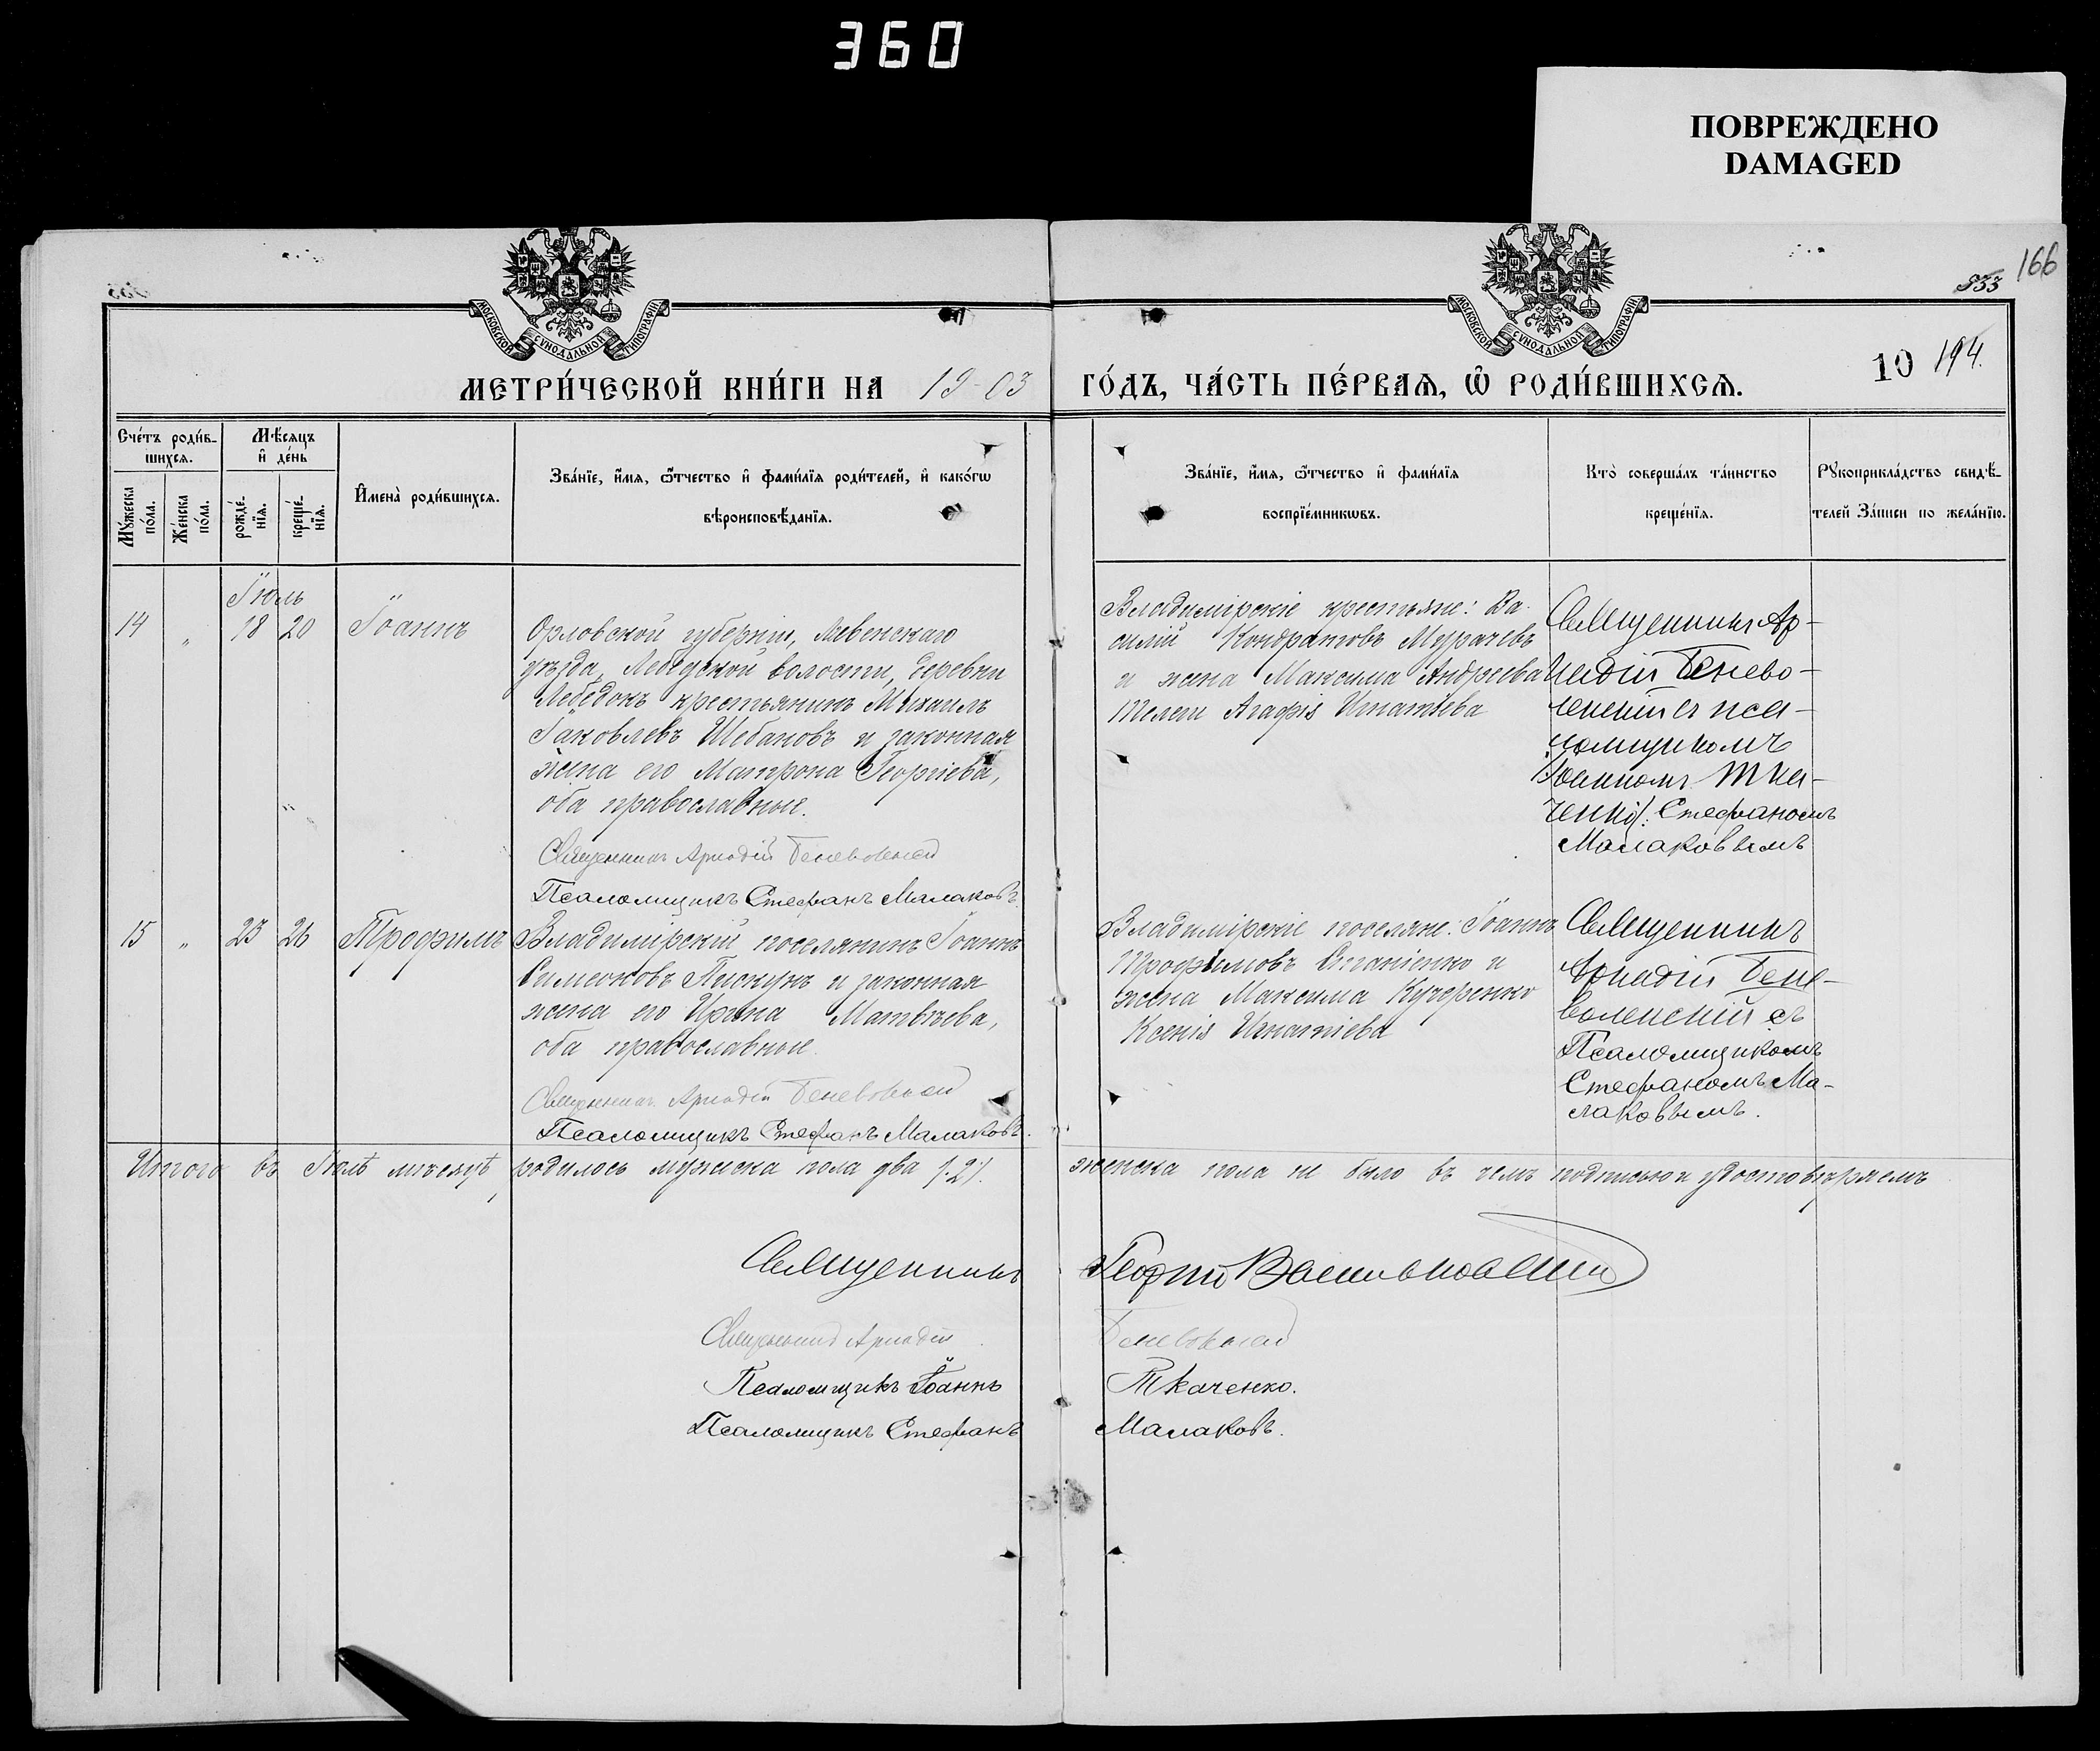 360
ПОВРЕЖДЕНО
DAMAGED
166
333
МОСКОВСКОЙ СѴНОДАЛЬНОЙ ТИПОГРАФІИ
МОСКОВСКОЙ СѴНОДАЛЬНОЙ ТИПОГРАФІИ
10 194.
МЕТРИ́ЧЕСКОЙ КНИ́ГИ НА 1903 ГО́ДЪ, ЧА́СТЬ ПЕ́РВАѦ, Ѡ҆ РОДИ́ВШИХСѦ.
Сче́тъ роди́в-
шихсѧ.
Мѣ́сѧцъ
и҆ де́нь
Мꙋ́жеска
по́ла.
Же́нска
по́ла.
рожде́-
нїѧ.
креще́-
нїѧ.
И҆мена̀ роди́вшихсѧ.
Зва́нїе, и҆́мѧ, ѻ҆́тчество и҆ фами́лїѧ роди́телей, и҆ како́гѡ
вѣроисповѣ́данїѧ.
Зва́нїе, и҆́мѧ, ѻ҆́тчество и҆ фами́лїѧ
воспрїе́мникѡвъ.
Кто̀ соверша́лъ та́инство
креще́нїѧ.
Рꙋкоприкла́дство свидѣ́-
телей За́писи по жела́нїю.
Іюль
14 " 18 20 Іоаннъ
Орловской губерніи, Ливенскаго
уѣзда, Лебедской волости, деревни
Лебедокъ крестьянинъ Михаилъ
Іаковлевъ Шебановъ и законная
жена его Матрона Георгіева,
оба православные.
Священникъ Аркадій Беневоленскій
Псаломщикъ Стефанъ Малаковъ.
Владимірскіе крестьяне: Ва-
силій Кондратовъ Мурачевъ
и жена Максима Андреева
Телеги Агафія Игнатіева
Священникъ Ар-
кадій Бенево-
ленскій съ пса-
ломщикомъ
Іоанномъ Тка-
ченко/. Стефаномъ
Малаковымъ
15 " 25 26 Трофимъ
Владимірскій поселянинъ Іоаннъ
Симеоновъ Пискунъ и законная
жена его Ирина Матвѣева,
оба православные.
Священникъ Аркадій Беневоленскій
Псаломщикъ Стефанъ Малаковъ.
Владимірскіе поселяне: Іоаннъ
Трофимовъ Опанченко и
жена Максима Кучеренко
Ксенія Игнатіева
Священникъ
Аркадій Бене-
воленскій съ
Псаломщикомъ
Стефаномъ Ма-
лаковымъ.
Итого въ Іюлѣ мѣсяцѣ родилось мужеска пола два /.2/. женска пола не было въ чемъ подписью и удостовѣряемъ
Священникъ Георгій Васильковскій
Священникъ Аркадій Беневоленскій
Псаломщикъ Іоаннъ Ткаченко.
Псаломщикъ Стефанъ Малаковъ.